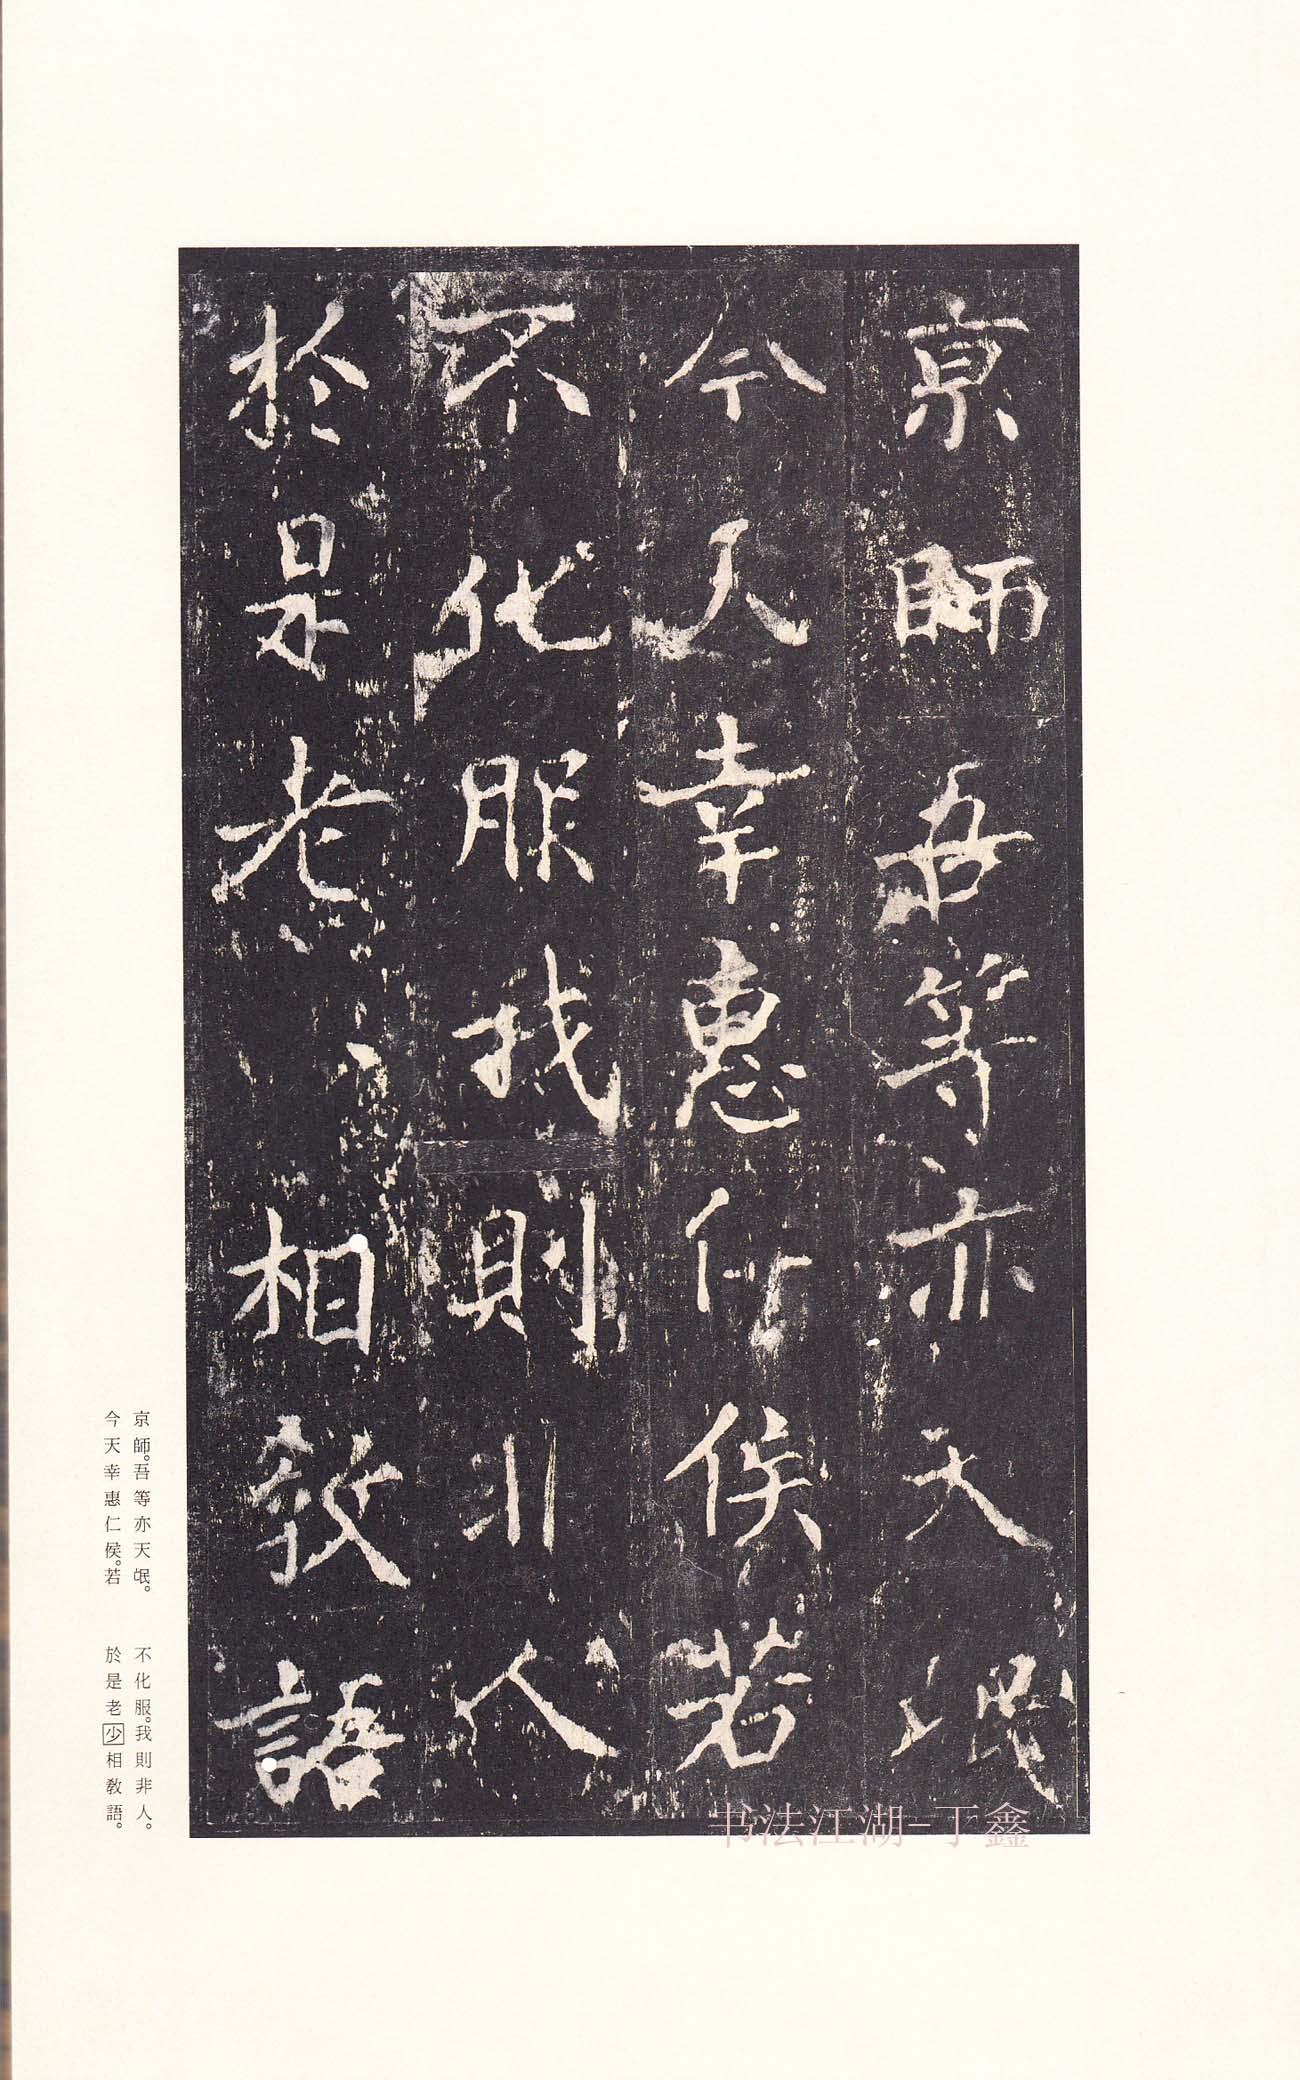 京師吾等亦天氓
今天幸惠仁侯若
不化服我則非人
於是老相敎語
京師。吾等亦天氓。
今天幸惠仁侯。若
不化服。我則非人。
於是老少相敎語。
书法江湖-丁鑫